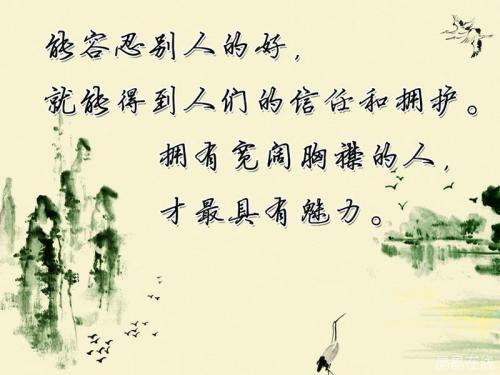 能容忍别人的好，
就能得到人们的信任和拥护。
拥有宽阔胸襟的人，
才最具有魅力。
晶晶在线